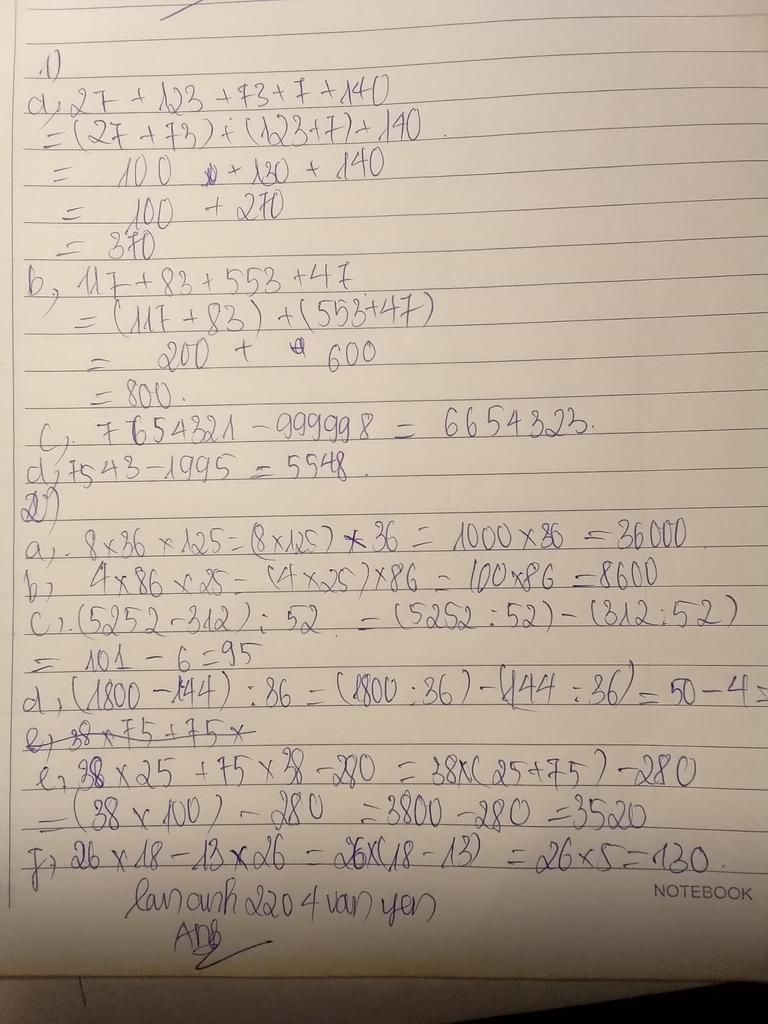 1)
a, 27 + 123 + 73 + 7 + 140
= (27 + 73) + (123+7) + 140
= 100 + 130 + 140
= 100 + 270
= 370
b, 117 + 83 + 553 + 47
= (117 + 83) + (553+47)
= 200 + 600
= 800.
c, 7654321 - 999998 = 6654323.
d, 7543 - 1995 = 5548.
2)
a, 8 x 36 x 125 = (8 x 125) x 36 = 1000 x 36 = 36000
b, 4 x 86 x 25 = (4 x 25) x 86 = 100 x 86 = 8600
c, (5252 - 312) : 52 = (5252 : 52) - (312 : 52)
= 101 - 6 = 95
d, (1800 - 144) : 36 = (1800 : 36) - (144 : 36) = 50 - 4 =
e, 38 x 75 + 75 x
e, 38 x 25 + 75 x 38 - 280 = 38 x (25 + 75) - 280
= (38 x 100) - 280 = 3800 - 280 = 3520
f, 26 x 18 - 13 x 26 = 26 x (18 - 13) = 26 x 5 = 130.
NOTEBOOK
lananh2204vanyen